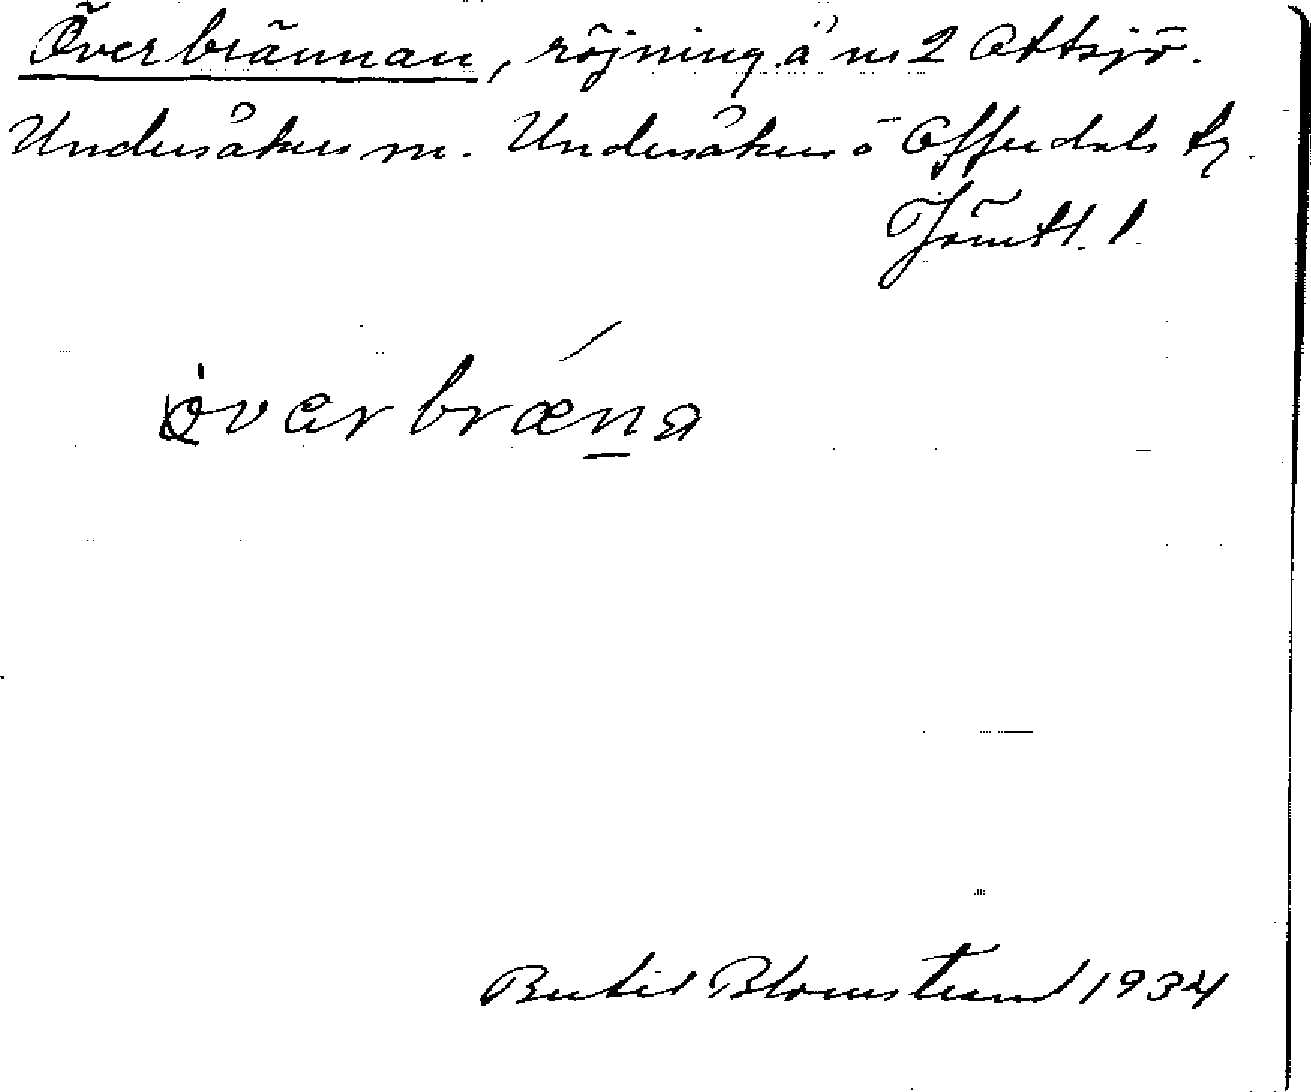 Överbrännan, röjning å nr 2 Ottsjö.
Undersåkers sn. Undersåkers o Offerdals tg.
Jämtl. l.
övarbræna
Bertil Blomstrand 1934